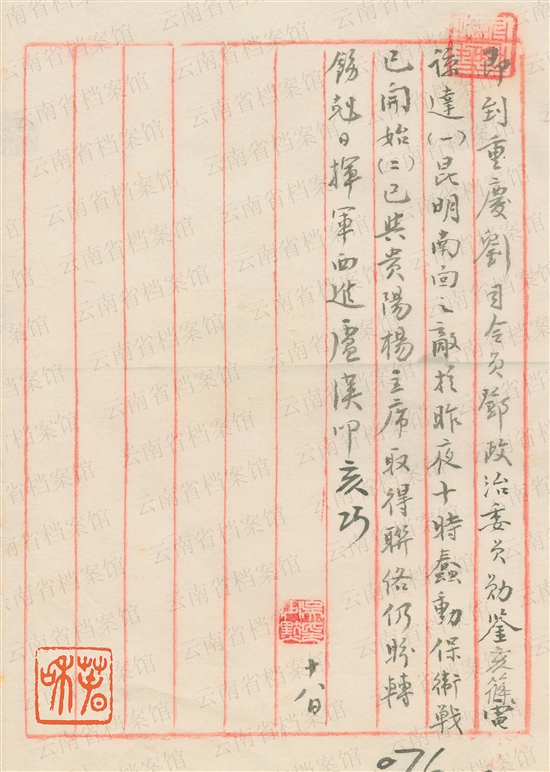 即到重慶劉司令員鄧政治委員勛鑒亥篠電
諒達(一)昆明南面之敵於昨夜十時蠢動保衛戰
已開始(二)已與貴陽楊主席取得聯佫仍盼轉
飭尅日揮軍西進盧漢叩亥巧
十八日
076
云南省档案馆